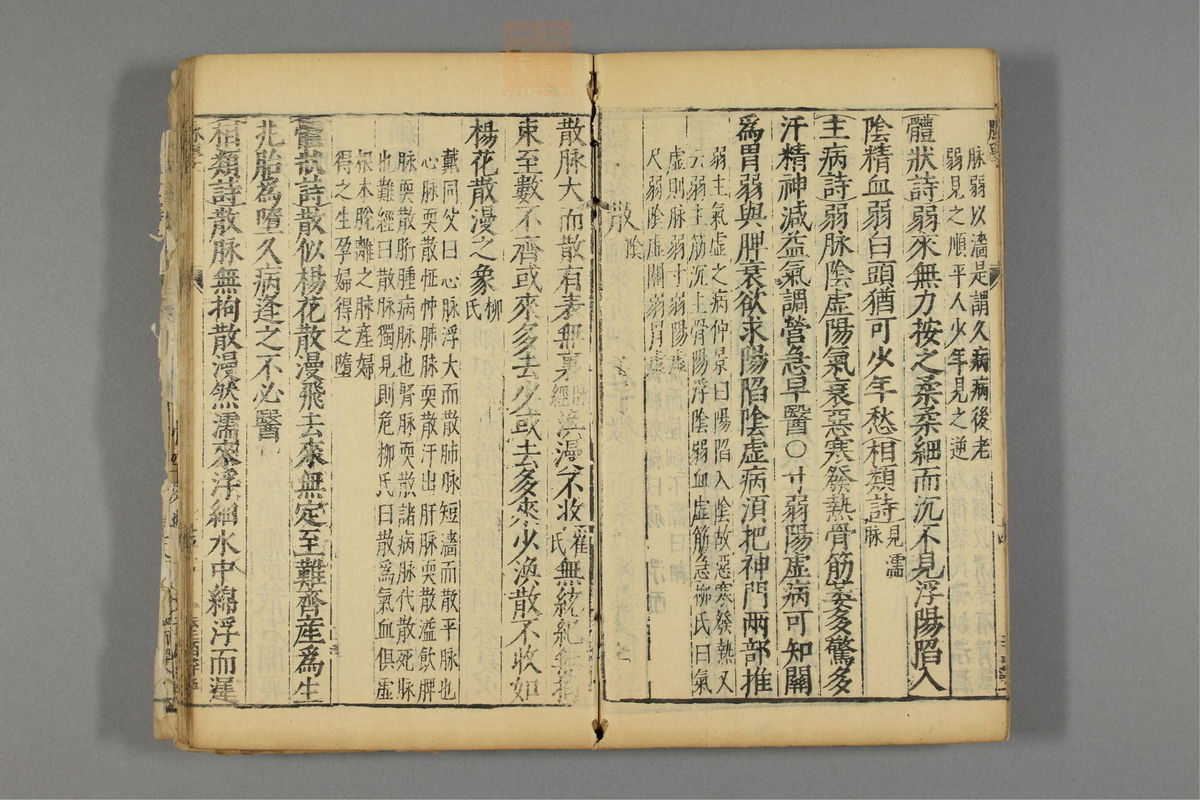 脉弱以濇是謂久病病後老
弱見之順平人少年見之逆
體狀詩弱來無力按之柔柔細而沉不見浮陽陷入
陰精血弱白頭猶可少年愁相類詩見濡脉
主病詩弱脉陰虛陽氣衰惡寒發熱骨筋萎多驚多
汗精神減益氣調營急早醫○寸弱陽虛病可知關
爲胃弱與脾衰欲求陽陷陰虛病須把神門兩部推
弱主氣虛之病仲景曰陽陷入陰故惡寒發熱又
云弱主筋沉主骨陽浮陰弱血虛筋急柳氏曰氣
虛則脉弱寸弱陽虛
尺弱陰虛關弱胃虛
散陰
散脉大而散有表無裏脉經渙漫不收崔氏無統紀無拘
束至數不齊或來多去少或去多來少渙散不收如
楊花散漫之象柳氏
戴同父曰心脉浮大而散肺脉短濇而散平脉也
心脉耎散怔忡肺脉耎散汗出肝脉耎散溢飲脾
脉耎散䯒腫病脉也腎脉耎散諸病脉代散死脉
也難經曰散脉獨見則危柳氏曰散爲氣血俱虛
根本脫離之脉產婦
得之生孕婦得之墮
體狀詩散似楊花散漫飛去來無定至難齊產爲生
兆胎爲墮久病逢之不必醫
相類詩散脉無拘散漫然濡來浮細水中綿浮而遲